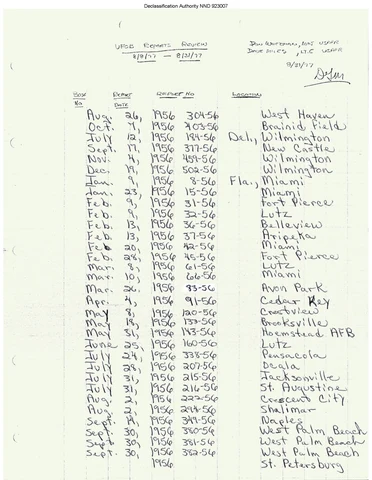 Declassification Authority NND 923007
UFOB REPORTS REVIEW
8/8/77 - 8/21/77
USAFR
8/21/77
BOX No. REPORT DATE REPORT NO LOCATION
Aug. 26, 1956 304-56 West Haven
Oct. 7, 1956 403-56 Brainid Field
July 12, 1956 184-56 Del., Wilmington
Sept. 17, 1956 377-56 New Castle
Nov. 4, 1956 459-56 Wilmington
Dec. 19, 1956 502-56 Wilmington
Jan. 9, 1956 8-56 Fla., Miami
Jan. 23, 1956 15-56 Miami
Feb. 9, 1956 31-56 Fort Pierce
Feb. 9, 1956 32-56 Lutz
Feb. 13, 1956 36-56 Belleview
Feb. 13, 1956 37-56 Aripeka
Feb. 20, 1956 42-56 Miami
Feb. 28, 1956 45-56 Fort Pierce
Mar. 8, 1956 61-56 Lutz
Mar. 10, 1956 66-56 Miami
Mar. 26, 1956 83-56 Avon Park
Apr. 4, 1956 91-56 Cedar Key
May 8, 1956 120-56 Crestview
May 18, 1956 132-56 Brooksville
May 31, 1956 143-56 Homestead AFB
June 25, 1956 160-56 Lutz
July 24, 1956 338-56 Pensacola
July 28, 1956 207-56 Ocala
July 31, 1956 215-56 Jacksonville
July 31, 1956 216-56 St. Augustine
Aug. 2, 1956 222-56 Crescent City
Aug. 2, 1956 294-56 Shalimar
Sept. 4, 1956 349-56 Naples
Sept. 30, 1956 380-56 West Palm Beach
Sept. 30, 1956 381-56 West Palm Beach
Sept. 30, 1956 382-56 West Palm Beach
1956 St. Petersburg